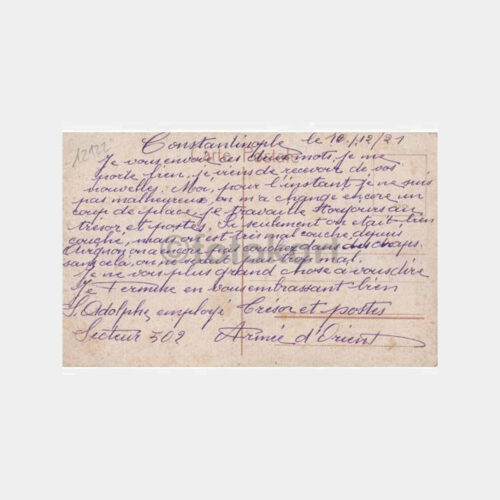 12122
Constantinople le 16/12/21
Carte Postale
Je vous envoie ces deux mots, je me
porte bien, je viens de recevoir de vos
nouvelle. Moi, pour l'instant je ne suis
pas malheureux, on m'a changé encore un
coup de place, je travaille toujours au
trésor et postes. Si seulement on était bien
couché, mais on est très mal couché depuis
on a encore pas couché dans des
sans cela, on ne serait pas trop mal.
Je ne vois plus grand chose a vous dire
Je termine en vous embrassant bien
S. Adolphe, employé Trésor et postes
Secteur 502 Armée d'Orient